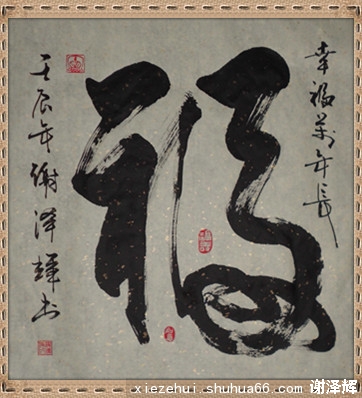 幸福萬年長
福
壬辰年谢泽辉书
xiezehui.shuhua66.com
谢泽辉